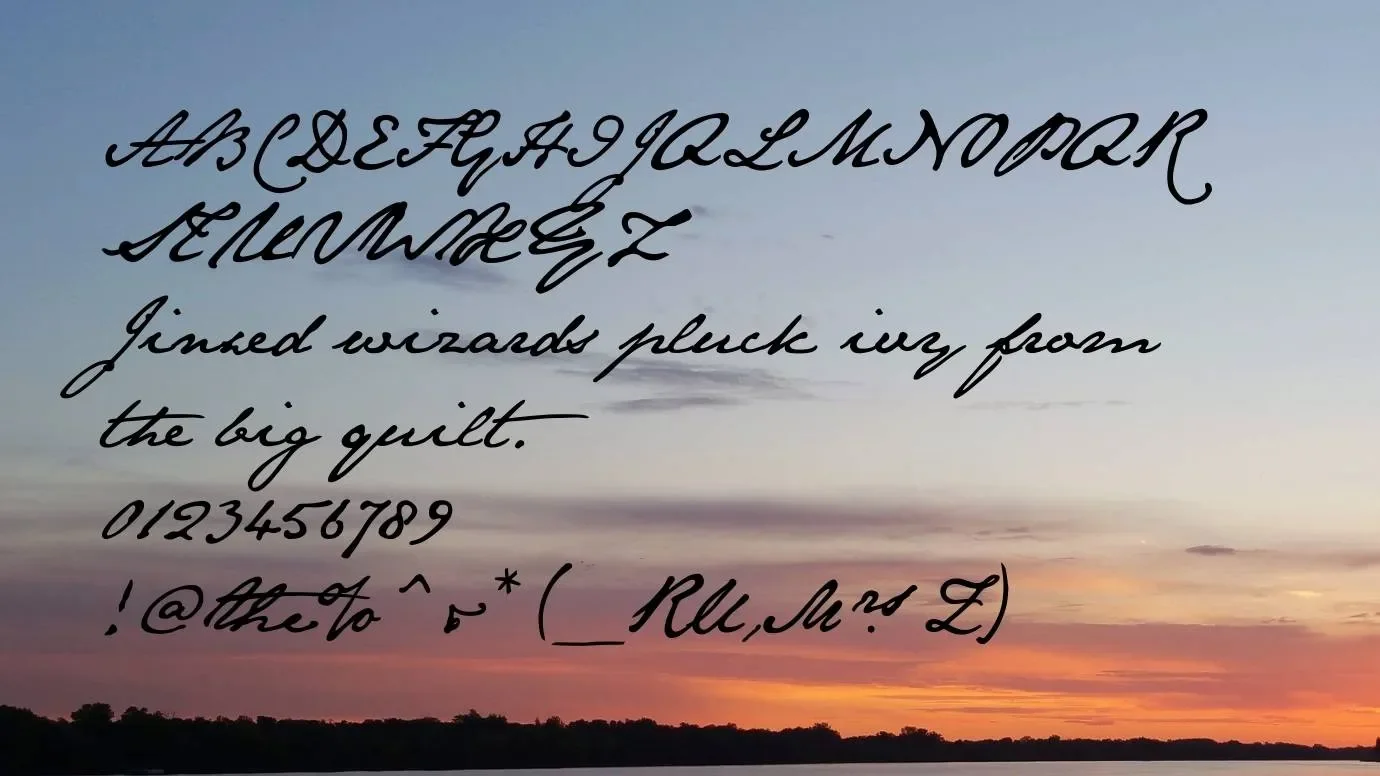 ABCDEFGHIJQLMNOPQR
STUVWXYZ
Jinxed wizards pluck ivy from
the big quilt.
0123456789
!@the%^ *(_RU,Mrs. Z)